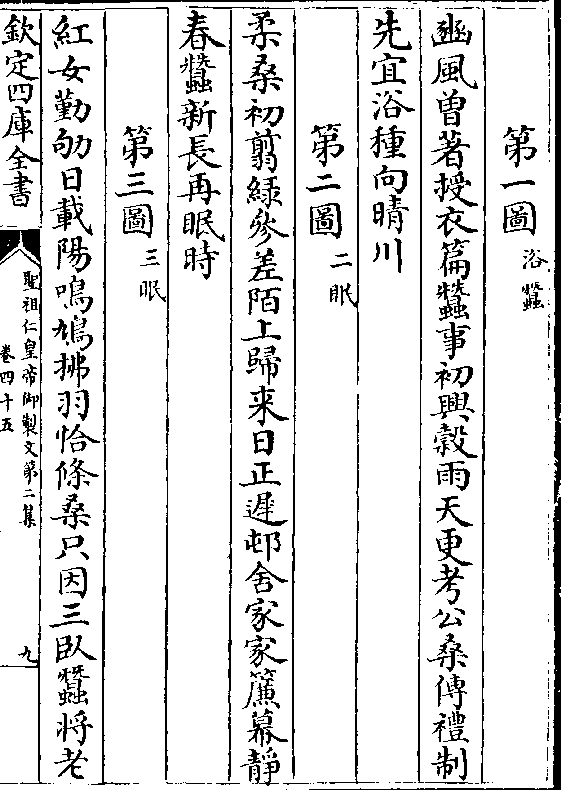 第一圖 浴蠶
豳風曽著授衣篇蠶事初興穀雨天更考公桑傳禮制
先宜浴種向晴川
第二圖 二眠
柔桑初翦綠參差陌上歸来日正遲邨舍家家簾幕靜
春蠶新長再眠時
第三圖 三眠
紅女勤劬日載陽鳴鳩拂羽恰條桑只因三卧蠶将老
欽定四庫全書
聖祖仁皇帝御製文第二集
卷四十五
九